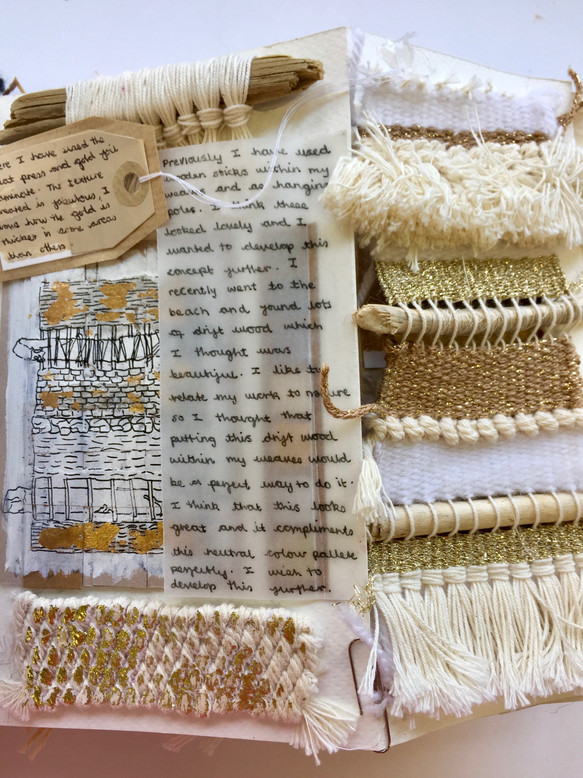 ere I have used the
eat press and gold foil
aminate. The texture
created is fabulous, I
how the gold is
thicker in some areas
than others
Previously I have used
wooden sticks within my
weaves and as hanging
poles. I think these
looked lovely and I
wanted to develop this
concept further. I
recently went to the
beach and found lots
of drift wood which
I thought was
beautiful. I like to
relate my work to nature
so I thought that
putting this drift wood
within my weaves would
be a perfect way to do it.
I think that this looks
great and it compliments
this neutral colour pallete
perfectly. I wish to
develop this further.